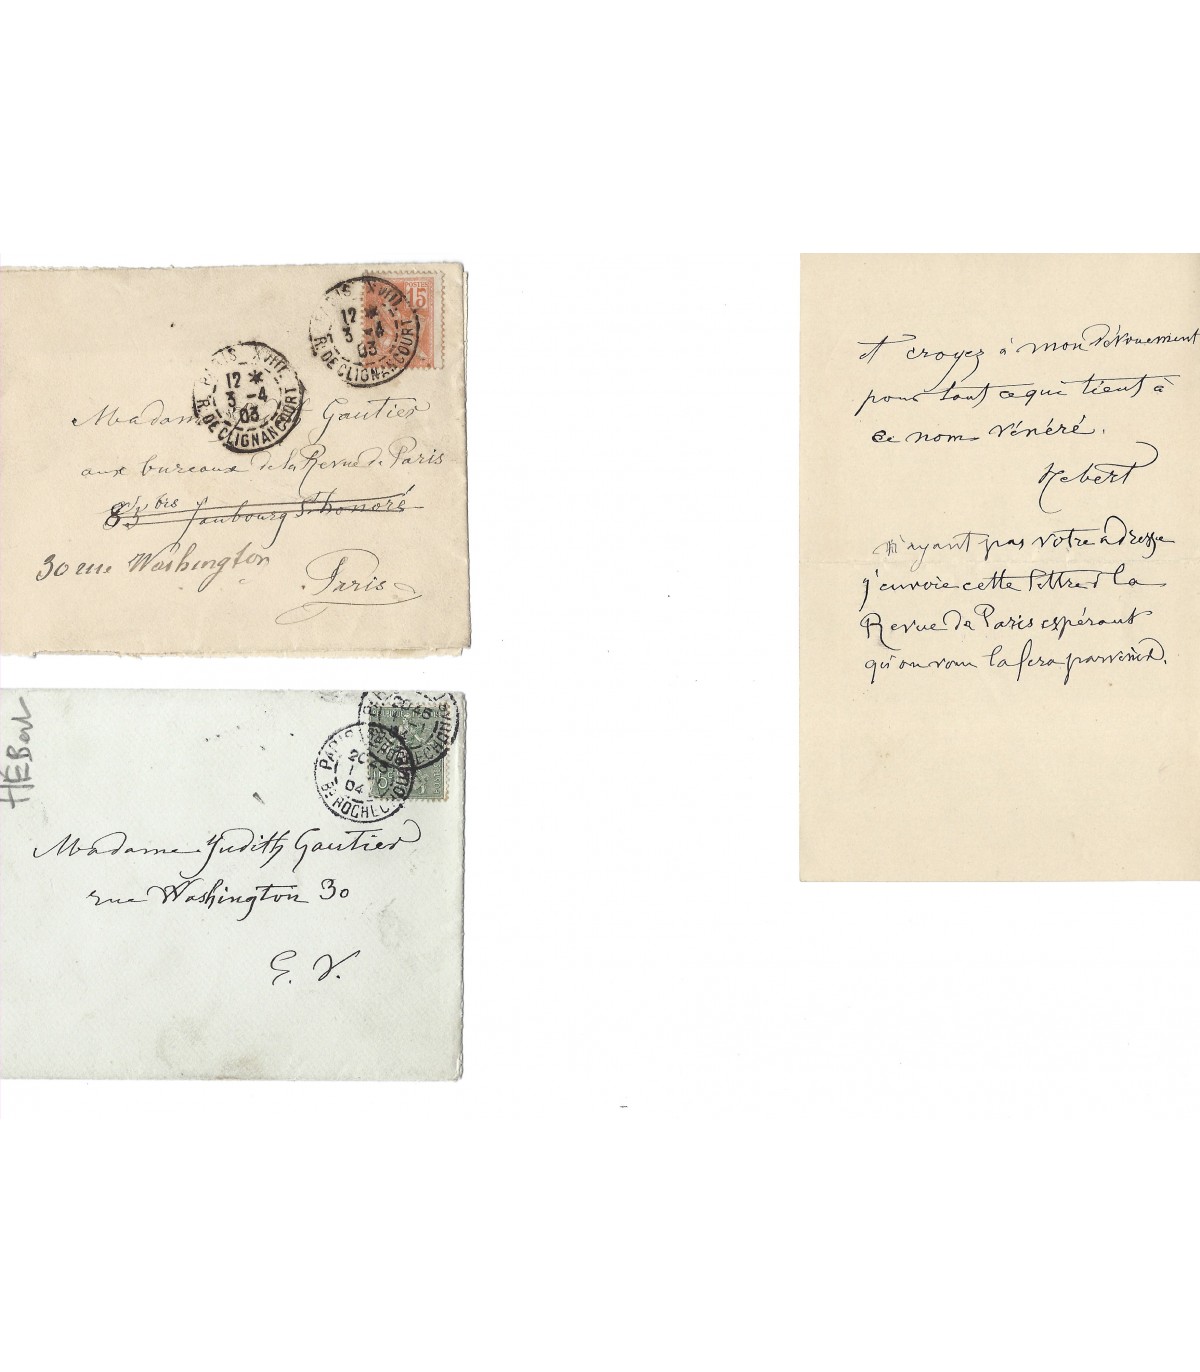 PARIS XVIII
12 *
3 -4
03
R. DE CLIGNANCOURT
POSTES
15
PARIS XVIII
12 *
3 -4
03
R. DE CLIGNANCOURT
Madame Gautier
aux bureaux de la Revue de Paris
85 bis faubourg St honoré
30 rue Washington
Paris
HÉBert
PARIS
04
Bd ROCHECHOUART
15
Madame Judith Gautier
rue Washington 30
E. V.
et croyez à mon dévouement
pour tout ce qui tient à
ce nom vénéré.
Hébert
N'ayant pas votre adresse
j'envoie cette lettre à la
Revue de Paris espérant
qu'on vous la fera parvenir.